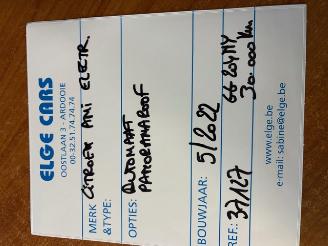 ELGE CARS
OOSTLAAN 3 - ARDOOIE
00-32.51.74.74.74
MERK CITROEN AMI ELECTR.
& TYPE:
OPTIES: AUTOMAAT
PANORAMAROOF
BOUWJAAR: 5/2022
REF.: 37/127 GG204NY
30.000 km
www.elge.be
e-mail: sabine@elge.be